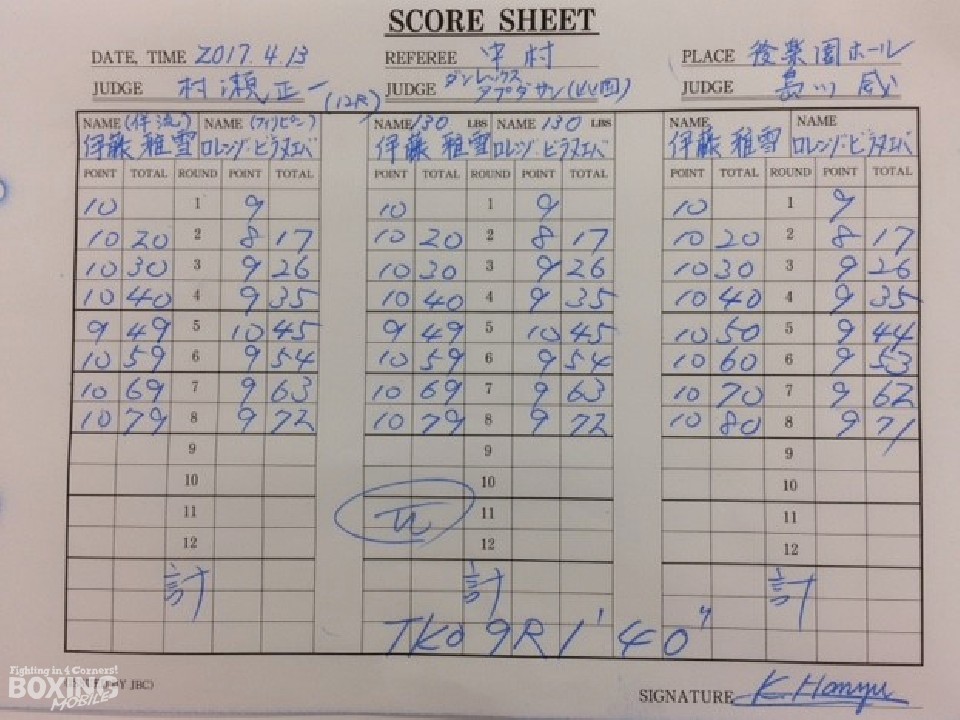 SCORE SHEET
DATE, TIME 2017.4.13 REFEREE 中村 PLACE 後楽園ホール
JUDGE 村瀬正一 (12R) JUDGE タプダサン(比国) JUDGE 島川威
NAME (伴流) NAME (フィリピン) NAME 130 LBS NAME 130 LBS NAME NAME
伊藤雅雪 ロレンゾ・ビラヌエバ 伊藤雅雪 ロレンゾ・ビラヌエバ 伊藤雅雪 ロレンゾ・ビラヌエバ
POINT TOTAL ROUND POINT TOTAL POINT TOTAL ROUND POINT TOTAL POINT TOTAL ROUND POINT TOTAL
10 1 9 10 1 9 10 1 9
10 20 2 8 17 10 20 2 8 17 10 20 2 8 17
10 30 3 9 26 10 30 3 9 26 10 30 3 9 26
10 40 4 9 35 10 40 4 9 35 10 40 4 9 35
9 49 5 10 45 9 49 5 10 45 10 50 5 9 44
10 59 6 9 54 10 59 6 9 54 10 60 6 9 53
10 69 7 9 63 10 69 7 9 63 10 70 7 9 62
10 79 8 9 72 10 79 8 9 72 10 80 8 9 71
9 9 9
10 10 10
11 11 11
12 12 12
計 計 計
TKO 9R 1'40"
Fighting in 4 Corners!
BOXING
MOBILE
BY JBC)
SIGNATURE K Hanyu